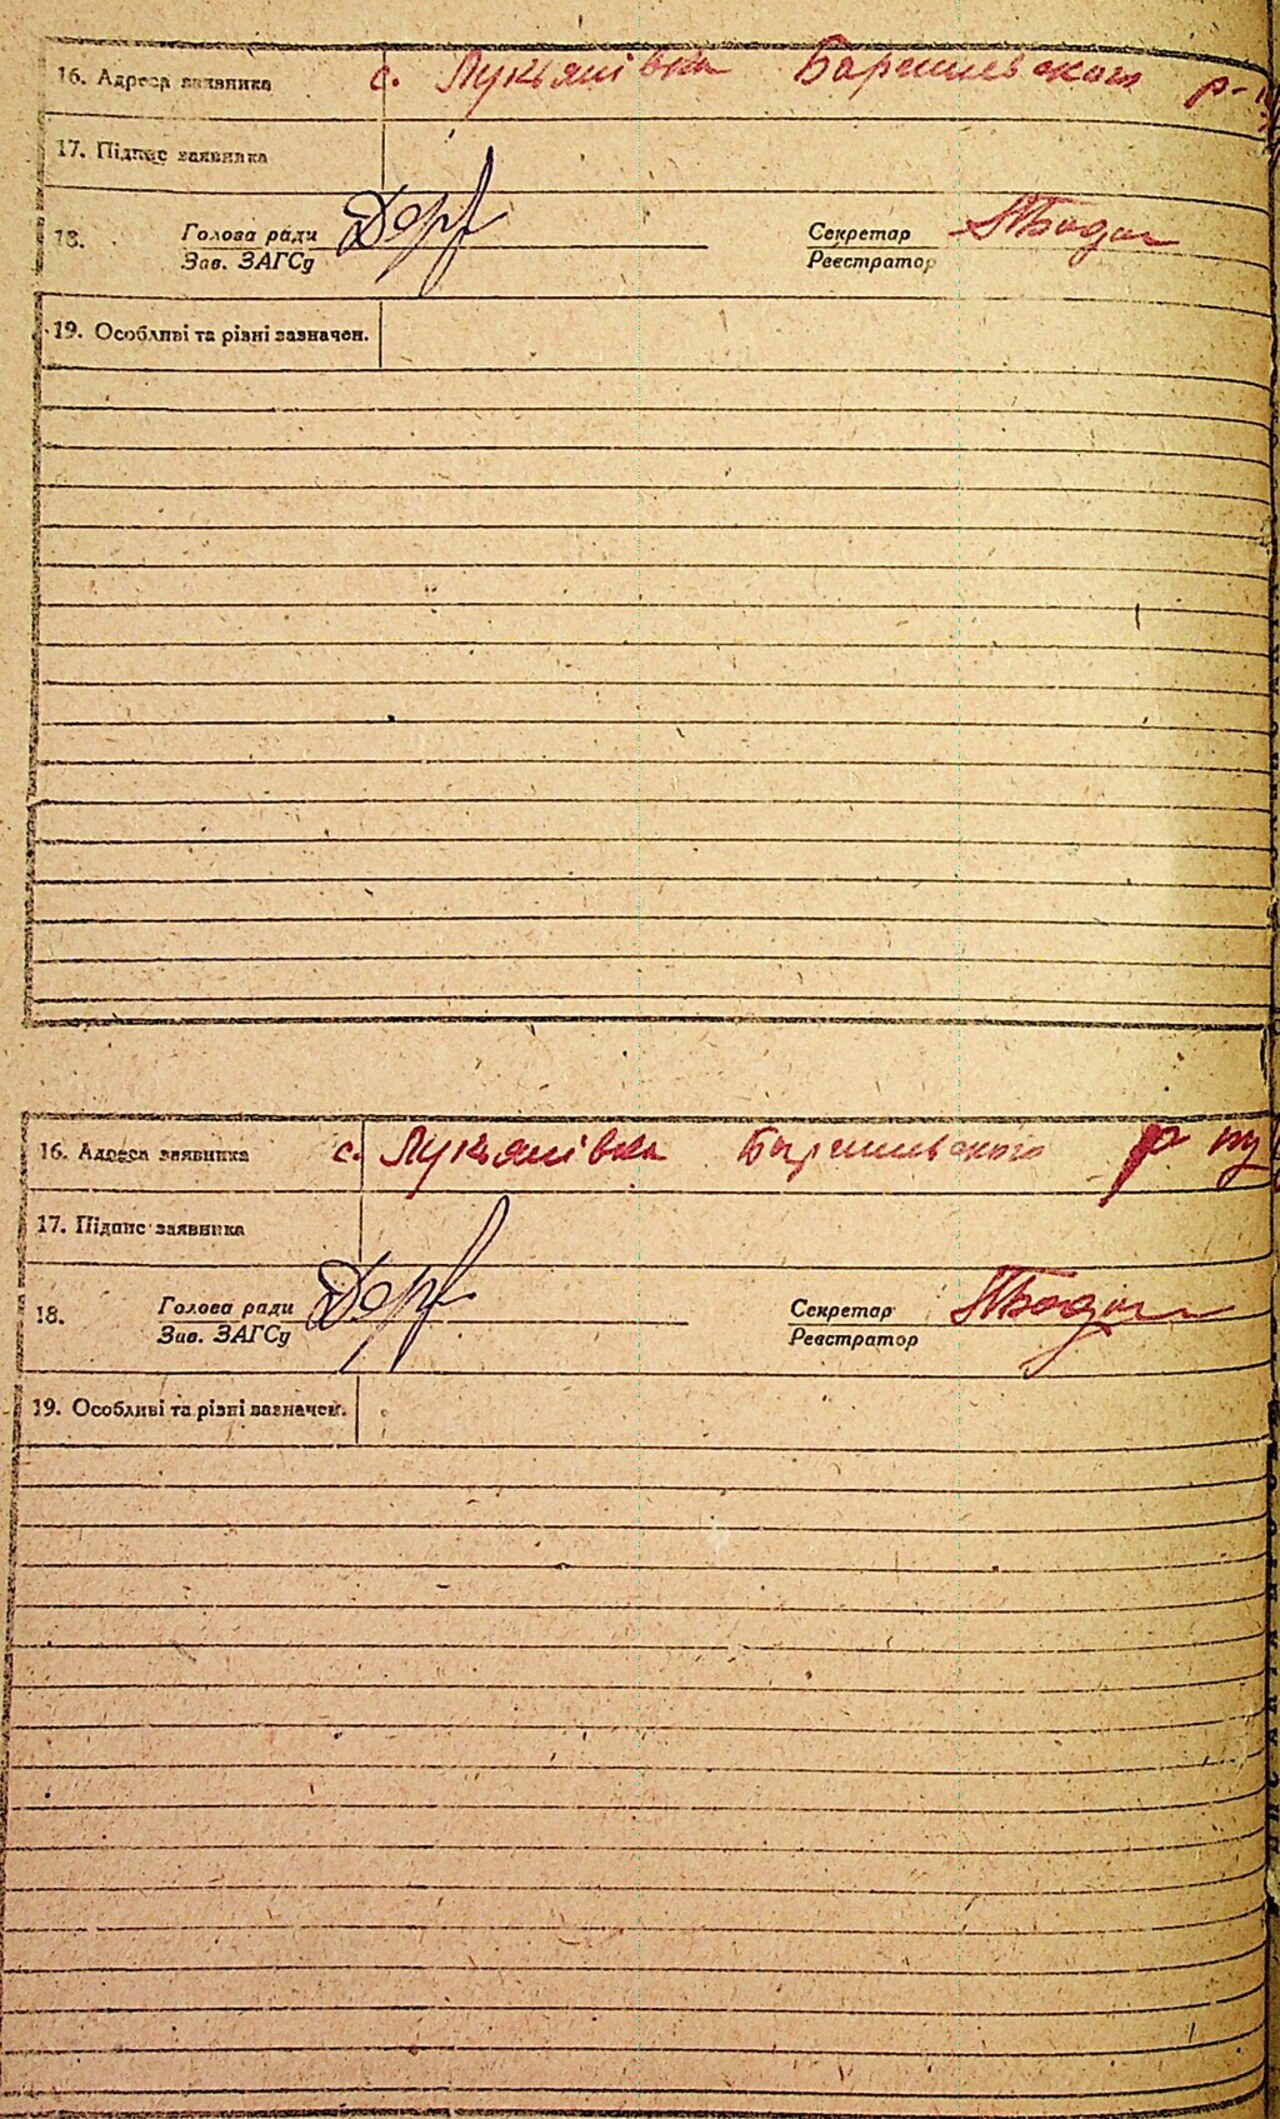 16. Адреса заявника с. Лукьянівка Баришевского р-
17. Підпис заявника
18. Голова ради Секретар
Зав. ЗАГСу Реєстратор
19. Особливі та різні зазначен.
16. Адреса заявника с. Лукьянівка Баришевского р ну
17. Підпис заявника
18. Голова ради Секретар
Зав. ЗАГСу Реєстратор
19. Особливі та різні зазначен.